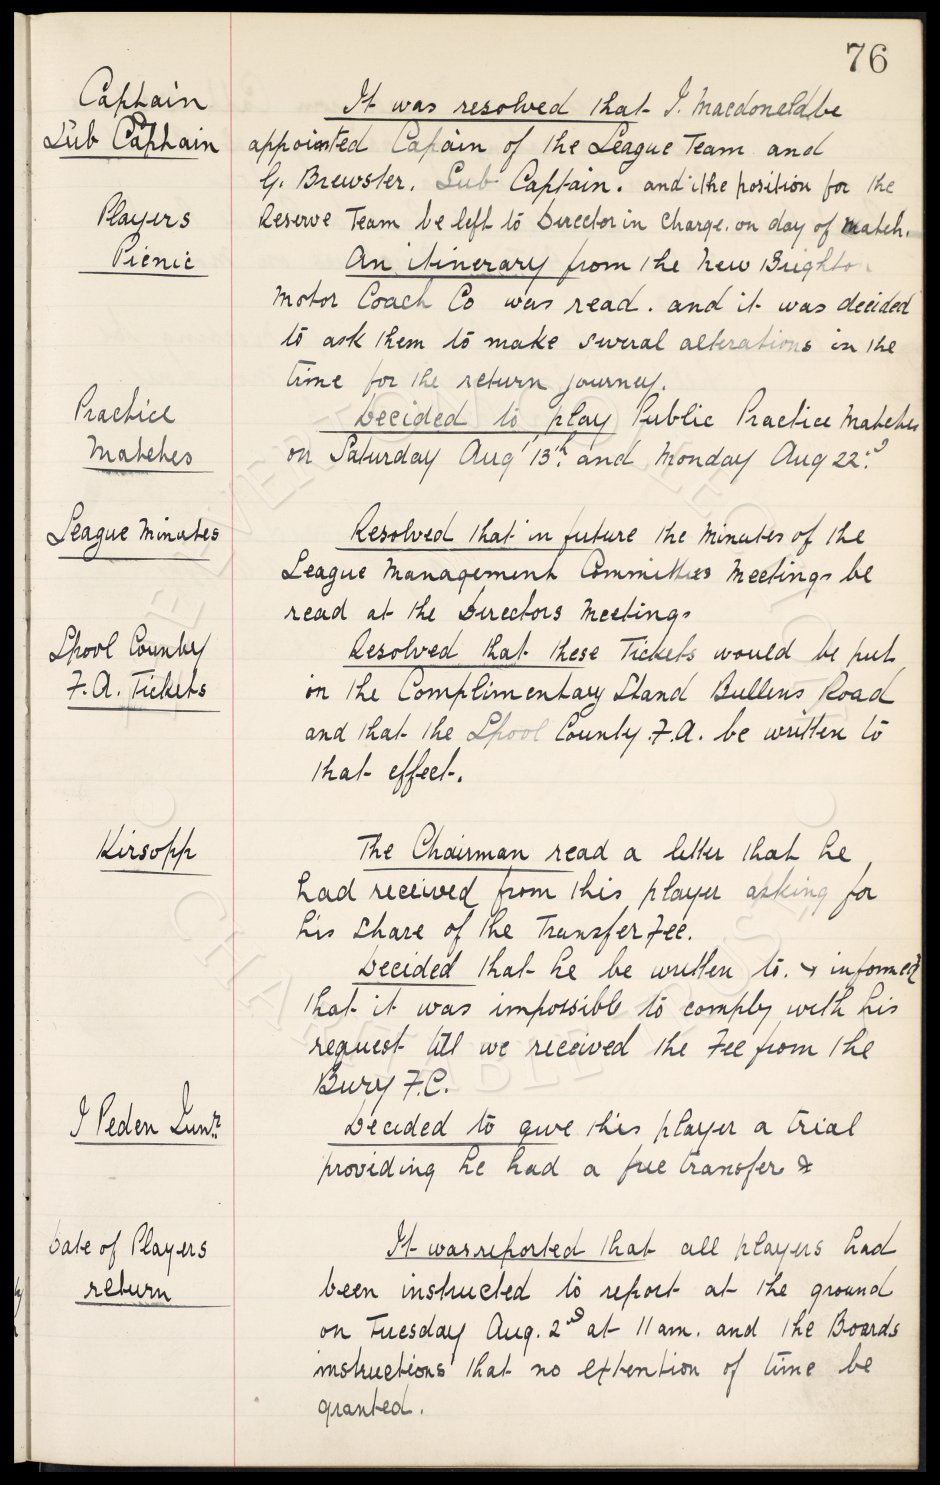 76
Captain
Sub Captain
It was resolved that J. Macdoneld be
appointed Capain of the League Team and
G. Brewster. Sub Captain. and the position for the
Reserve Team be left to Director in charge. on day of match.
Players
Picnic
An itinerary from the New Brighton
Motor Coach Co was read. and it was decided
to ask them to make several alterations in the
time for the return journey.
Practice
Matches
Decided to play Public Practice Matches
on Saturday Aug 13th. and Monday Aug 22nd
League Minutes
Resolved that in future the Minutes of the
League Management Committees Meetings be
read at the Directors Meetings
Lpool County
F.A. Tickets
Resolved that these Tickets would be put
in the Complimentary Stand Bullens Road
and that the Lpool County F.A. be written to
that effect.
Kirsopp
The Chairman read a letter that he
had received from this player asking for
his share of the Transfer Fee.
Decided that he be written to. & informed
that it was impossible to comply with his
request till we received the Fee from the
Bury F.C.
J Peden Junr.
Decided to give this player a trial
providing he had a free transfer &
Date of Players
return
It was reported that all players had
been instructed to report at the ground
on Tuesday Aug. 2nd at 11 am. and the Boards
instructions that no extention of time be
granted.
THE EVERTON COLLECTION
CHARITABLE TRUST